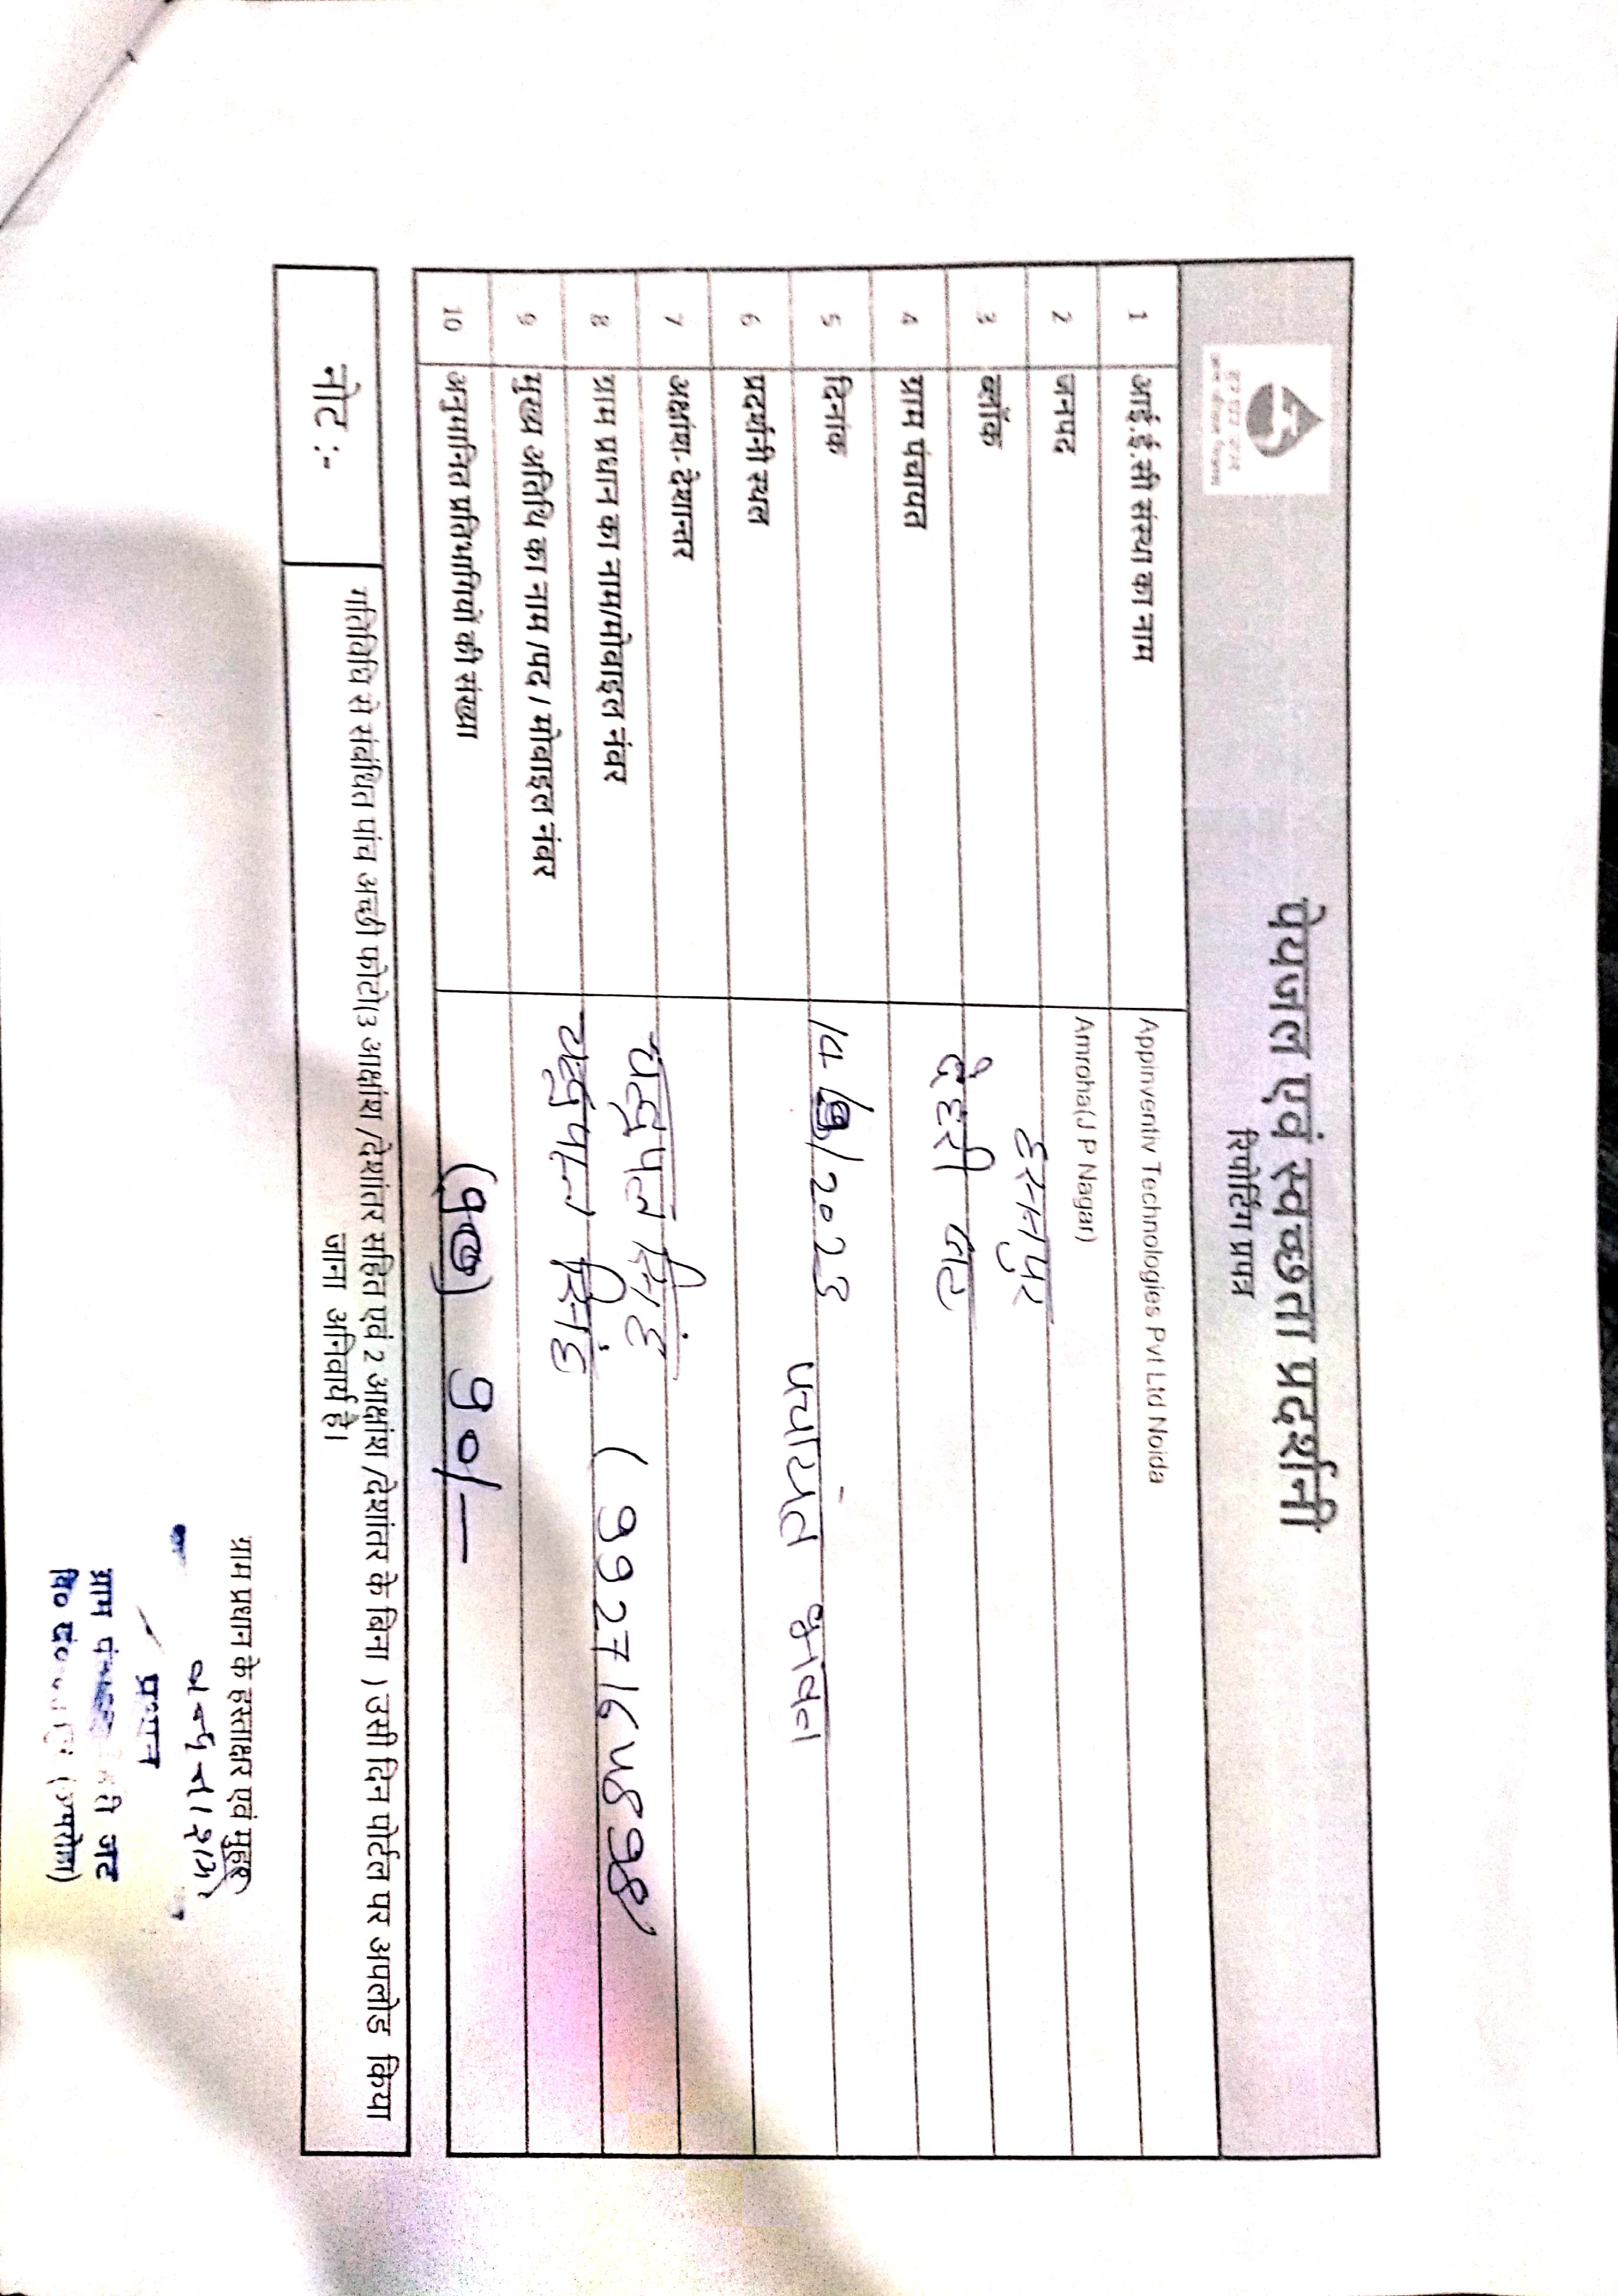 पेयजल एवं स्वच्छता प्रदर्शनी
रिपोर्टिंग प्रपत्र
1 आई.ई.सी संस्था का नाम Appinventiv Technologies Pvt Ltd Noida
2 जनपद Amroha(J P Nagar)
3 ब्लॉक हसनपुर
4 ग्राम पंचायत देहरी जट
5 दिनांक /2023
6 प्रदर्शनी स्थल पचायत
7 अक्षांश-देशान्तर
8 ग्राम प्रधान का नाम/मोबाइल नंबर चन्द्रपाल सिंह ( 9927165898
9 मुख्य अतिथि का नाम /पद / मोबाइल नंबर चन्द्रपाल सिंह
10 अनुमानित प्रतिभागियों की संख्या 90/-
नोट :- गतिविधि से संबंधित पांच अच्छी फोटो(3 आक्षांश /देशांतर सहित एवं 2 आक्षांश /देशांतर के बिना ) उसी दिन पोर्टल पर अपलोड किया
जाना अनिवार्य है।
ग्राम प्रधान के हस्ताक्षर एवं मुहर
प्रधान
ग्राम जट
वि० (अमरोहा)